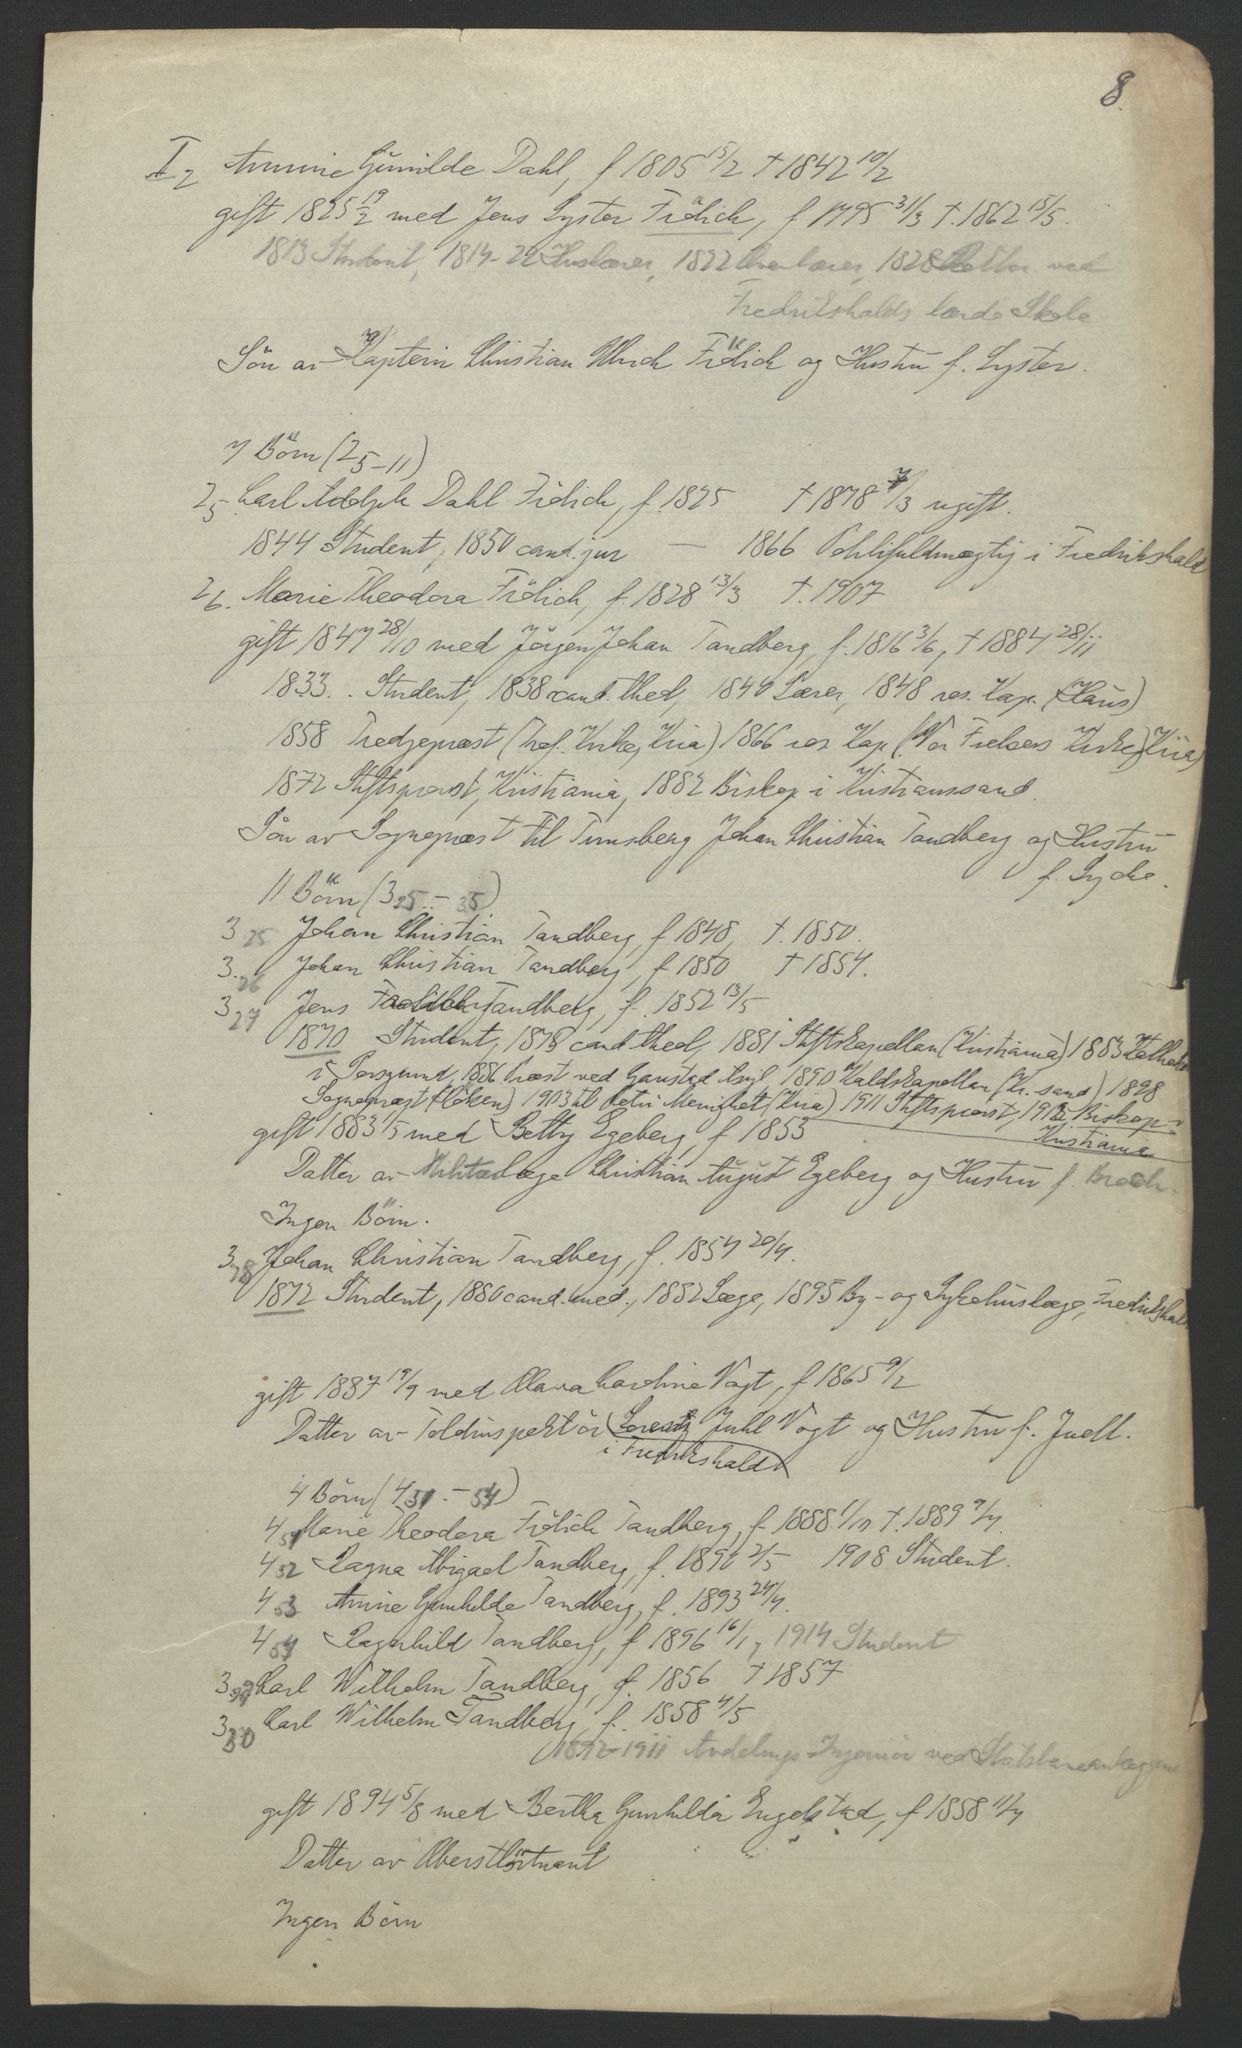 8.
I 2 Annine Gunilde Dahl, f 1805 15/2 † 1842 10/2
gift 1825 19/2 med Jens Lyster Frölich, f 1795 31/3 †. 1862 15/5.
1813 Student, 1814-22 Huslærer, 1822 Overlærer, 1828 Rektor ved
Fredrikshalds lærde Skole
Sön av Kaptein Christian Ulrich Frölich og Hustru f. Lyster.
7 Börn (2 5-11)
2 5. Carl Adolph Dahl Frölich, f. 1825 † 1878 7/3 ugift.
1844 Student, 1850 cand. jur — 1866 Politifuldmægtig i Fredrikshald
2 6. Marie Theodora Frölich, f. 1828 13/3 †. 1907
gift 1847 28/10 med Jörgen Johan Tandberg, f. 1816 3/6, † 1884 28/11
1833. . Student, 1838 cand. theol, 1840 Lærer, 1848 res. Kap. (Haus)
1858 Tredjeprest (Tref. Kirke, Kria) 1866 res Kap (Vor Frelsers Kirke, Kria)
1872 Stiftsprovst, Kristiania, 1882 Biskop i Kristianssand.
Sön av Sogneprest til Tunsberg Johan Christian Tandberg og Hustru
f. Lyche.
11 Börn (3 25.-35)
3 25 Johan Christian Tandberg, f 1848, †. 1850.
3. 26 Johan Christian Tandberg, f 1850 † 1854.
3 27 Jens Frølich Tandberg, f. 1852 13/5
1870 Student, 1878 cand theol, 1881 Stiftskapellan (Kristiania) 1883 Kateket
i Porsgrund, 1886 Prest ved Gaustad Asyl, 1890 Kaldskapellan (Kr. sand) 1898
Sogneprest (Löken) 1903 til Petri Menighet (Kria) 1911 Stiftsprovst, 1912 Biskop
Kristiania
gift 1883 1/5 med Betty Egeberg, f 1853
Datter av Militærlæge Christian August Egeberg og Hustru f. Broch.
Ingen Börn.
3 28 Johan Christian Tandberg, f. 1854 20/4.
1872 Student, 1880 cand. med., 1882 Læge, 1895 By- og Sykehuslæge, Fredrikshald
gift 1887 19/9 med Olava Caroline Vogt, f 1865 9/2
Datter av Toldinspektör Lorentz Juhl Vogt og Hustru f. Juell.
i Fredrikshald
4 Börn (4 51.-54)
4 51 Marie Theodora Frölich Tandberg, f 1888 1/10 †. 1889 9/4.
4 52 Ragna Abigael Tandberg, f. 1890 2/5 1908 Student.
4 53 Annine Gunhilde Tandberg, f. 1893 24/4.
4 54 Ragnhild Tandberg, f 1896 16/1, 1914 Student
3 29 Carl Wilhelm Tandberg, f. 1856 † 1857
3 30 Carl Wilhelm Tandberg, f. 1858 4/5
1892-1911 Avdelings-Ingeniör ved Statsbaneanlæggene
gift 1894 5/8 med Bertha Gunhilda Engelstad, f 1858 11/4
Datter av Oberstlöitnant
Ingen Börn